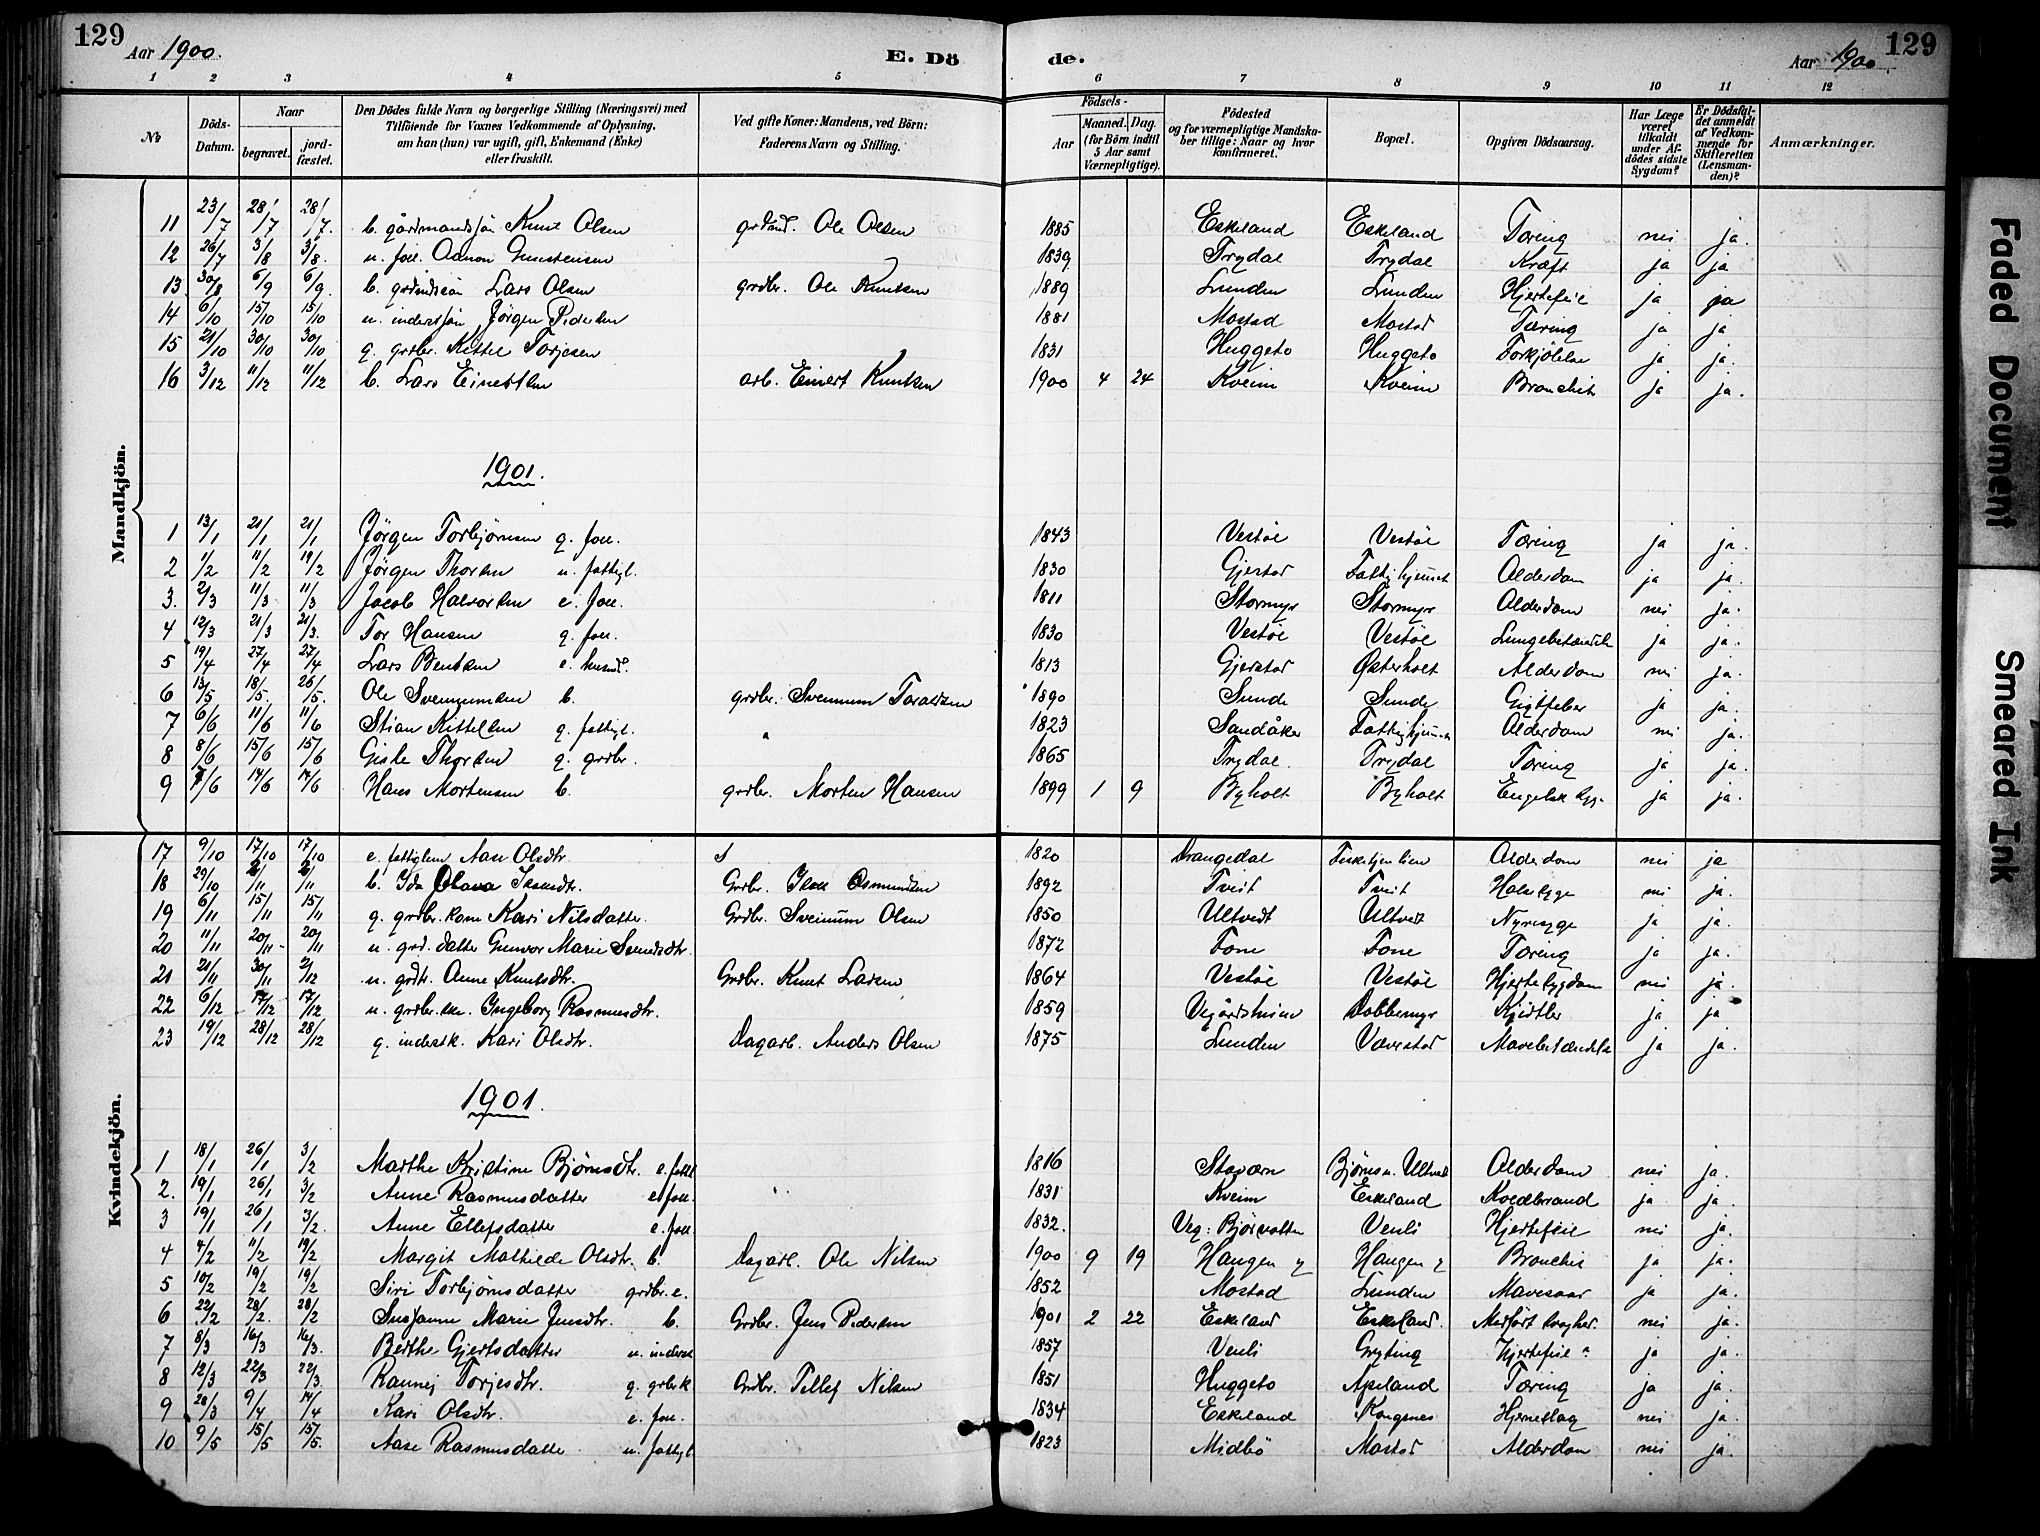 129
Aar 1900.
E. Dö
de.
Aar 1900.
129
1 2 3 4 5 6 7 8 9 10 11 12
No
Döds-Datum.
Naar
begravet.
jord-fæstet.
Den Dödes fulde Navn og borgerlige Stilling (Næringsvei) med
Tilföiende for Voxnes Vedkommende af Oplysning,
om han (hun) var ugift, gift, Enkemand (Enke)
eller fraskilt.
Ved gifte Koner: Mandens, ved Börn:
Faderens Navn og Stilling.
Födsels-
Aar
Maaned. Dag.
(for Börn indtil
5 Aar samt
Værnepligtige).
Födested
og for værnepligtige Mandska-
ber tillige: Naar og hvor
konfirmeret.
Bopæl.
Opgiven Dödsaarsag.
Har Læge
været
tilkaldt
under Af-
dödes sidste
Sygdom?
Er Dödsfal-
det anmeldt
af Vedkom-
mende for
Skifteretten
(Lensman-
den)?
Anmærkninger.
Mandkjön.
11 23/7 28/7 28/7. b. gårdmandssøn Knut Olsen grdmd. Ole Olsen 1885 Eskeland Eskeland Tæring nei ja.
12 26/7 3/8 3/8. u. foll. Aanon Gunstensen 1839 Trydal Trydal Kræft ja ja
13 30/8 6/9 6/9. b. grdmdssøn Lars Olsen grdbr. Ole Knutsen 1889 Lunden Lunden Hjertefeil ja ja
14 6/10 15/10 15/10 u. inderstsøn Jørgen Pedersen 1881 Mostad Mostad Tæring ja ja
15 21/10 30/10 30/10 g. grdbr. Kittel Torjesen 1831 Huggeto Huggeto Forkjølelse ja ja.
16 3/12 11/12 11/12 b. Lars Einertsen arb. Einert Knutsen 1900 4 24 Kveim Kveim Bronchit ja ja.
1901.
1 13/1 21/1 21/1 Jörgen Torbjørnsen g. foll. 1843 Vestöl Vestöl Tæring ja ja.
2 1/2 11/2 19/2 Jørgen Thorsen u. fattigl. 1830 Gjerstad Alderdom ja ja.
3. 2/3 11/3 11/3 Jacob Halvorsen e. foll. 1811 Stormyr Stormyr Alderdom nei ja.
4 12/3 21/3 21/3. Tor Hansen g. foll. 1830 Vestöl Vestöl ja ja.
5 19/4 27/4 27/4 Lars Bentsen e. husmd. 1813 Gjerstad Østerholt Alderdom nei ja.
6 13/5 18/5. 26/5. Ole Svennumsen b. grdbr. Svennum Taraldsen 1890 Sunde Sunde Gigtfeber ja ja.
7 6/6 11/6 11/6 Stian Kittelsen g. fattigl. 1823 Sandåker Alderdom nei ja.
8 8/6 15/6 15/6 Gisle Thorsen g. grdbr. 1865 Trydal. Trydal Tæring ja ja.
9 7/6 14/6 14/6 Hans Mortensen b. grdbr. Morten Hansen 1899 1 9 Byholt Byholt Engelsk syg. ja ja.
Kvindekjön.
17 9/10 17/10 17/10 e. fattiglem Aase Olsdtr. 1820 Drangedal Alderdom nei ja
18 29/10 6/11 6/11 b. Ida Olava Isaksdtr. Grdbr. Isak Osmundsen 1892 Tveit Tveit Halssyge nei ja.
19 6/11 15/11 15/11 g. grdbr. kone Kari Nilsdatter. Grdbr. Sveinum Olsen 1850 Ultvedt Ultvedt Nyresyge ja ja.
20 11/11 20/11 20/11 u. grd. datter Gunvor Marie Svendsdtr. 1872 Fone Fone Tæring ja ja.
21 21/11 30/11 2/12 u. grdtr. Anne Knutsdtr. Grdbr. Knut Larsen 1864 Vestöl Vestöl Hjertesygdom nei ja.
22 6/12 17/12 17/12 u. grdbr. Ingeborg Rasmusdtr. 1859 Vegårdsheien Dobbemyr Kjirtler ja ja
23 19/12 28/12 28/12 g. inderstk. Kari Olsdtr. Dagarb. Anders Olsen 1875 Lunden Væverstad Mavebetændelse ja ja.
1901.
1 18/1 26/1 3/2 Marthe Kristine Bjørnsdtr. e. 1816 Staværn Bjørnsn. Ultvedt Alderdom nei ja.
2. 19/1 26/1 3/2 Anne Rasmusdatter e. foll. 1831 Kveim Eskeland Koldbrand ja ja.
3 19/1 26/1 3/2. Anne Ellefsdatter e. foll. 1832. Veg: Bjørvatten Venli Hjertefeil nei ja.
4 4/2 11/2 19/2 Margit Mathilde Olsdtr. b. Dagarb. Ole Nilsen 1900 9 19 Haugen Haugen Bronchit ja ja.
5 10/2 19/2 19/2 Siri Torbjørnsdatter grdbr. e. 1852 Mostad Lunden Mavesaar ja ja.
6 22/2 28/2. 28/2 Susanne Marie Jensdtr. b. Grdbr. Jens Pedersen 1901 2 22 Eskeland Eskeland. Medfødt svaghed. nei ja.
7 8/3 16/3 16/3. Berthe Gjertsdatter u. inderst 1857 Venli Gryting Hjertefeil ja ja.
8 12/3 22/3 22/3. Rannei Torjesdtr. g. grbrk Grdbr. Tellef Nilsen 1851 Huggeto Apeland Tæring ja ja.
9 28/3 9/4 14/4 Kari Olsdtr. e. foll. 1834 Eskeland Kongsnes Hjerneslag nei ja.
10 9/5 15/5 15/5. Aase Rasmusdatter u. fattigl. 1823 Midbö Mostad Alderdom nei ja.
Faded Document
Smeared Ink